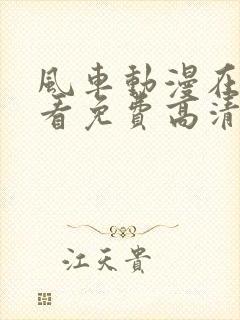 風車動漫在
看免費高清
江天貴